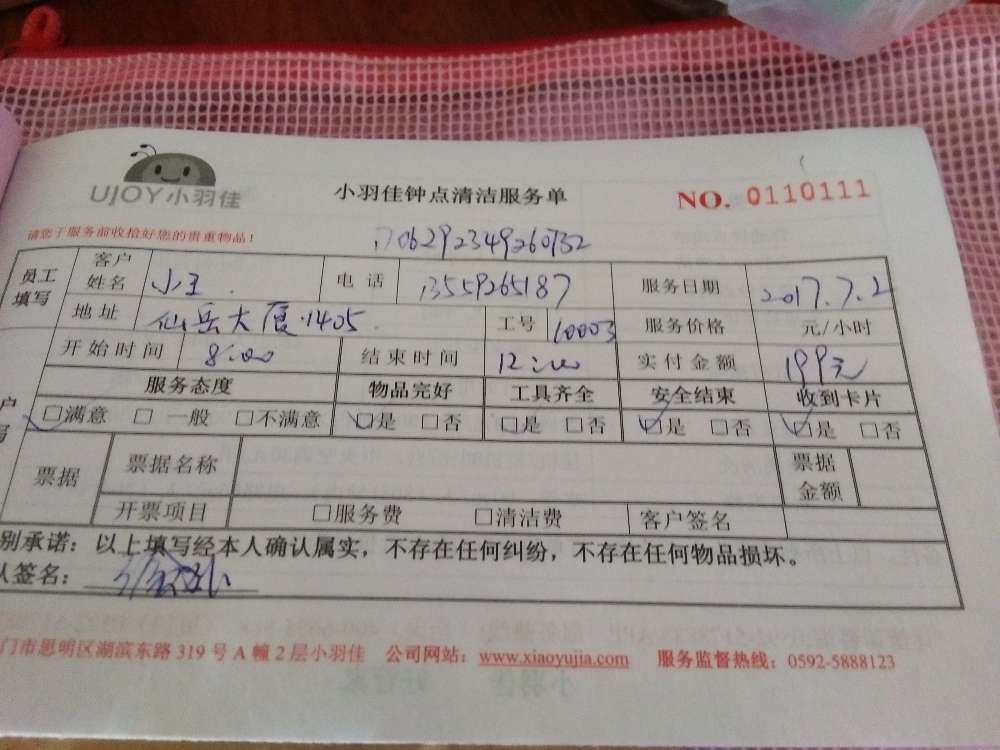 UJOY小羽佳
小羽佳钟点清洁服务单
NO. 0110111
请您于服务前收拾好您的贵重物品！
员工填写 客户姓名 小王. 电话 13559265187 服务日期 2017.7.2
地址 仙岳大厦.1405. 工号 10003 服务价格 元/小时
开始时间 8:00 结束时间 12:00 实付金额 199元
服务态度 物品完好 工具齐全 安全结束 收到卡片
☑满意 □一般 □不满意 ☑是 □否 ☑是 □否 ☑是 □否 ☑是 □否
票据 票据名称 票据金额
开票项目 □服务费 □清洁费 客户签名
别承诺：以上填写经本人确认属实，不存在任何纠纷，不存在任何物品损坏。
人签名：
门市思明区湖滨东路 319 号 A 幢 2 层小羽佳 公司网站：www.xiaoyujia.com 服务监督热线：0592-5888123